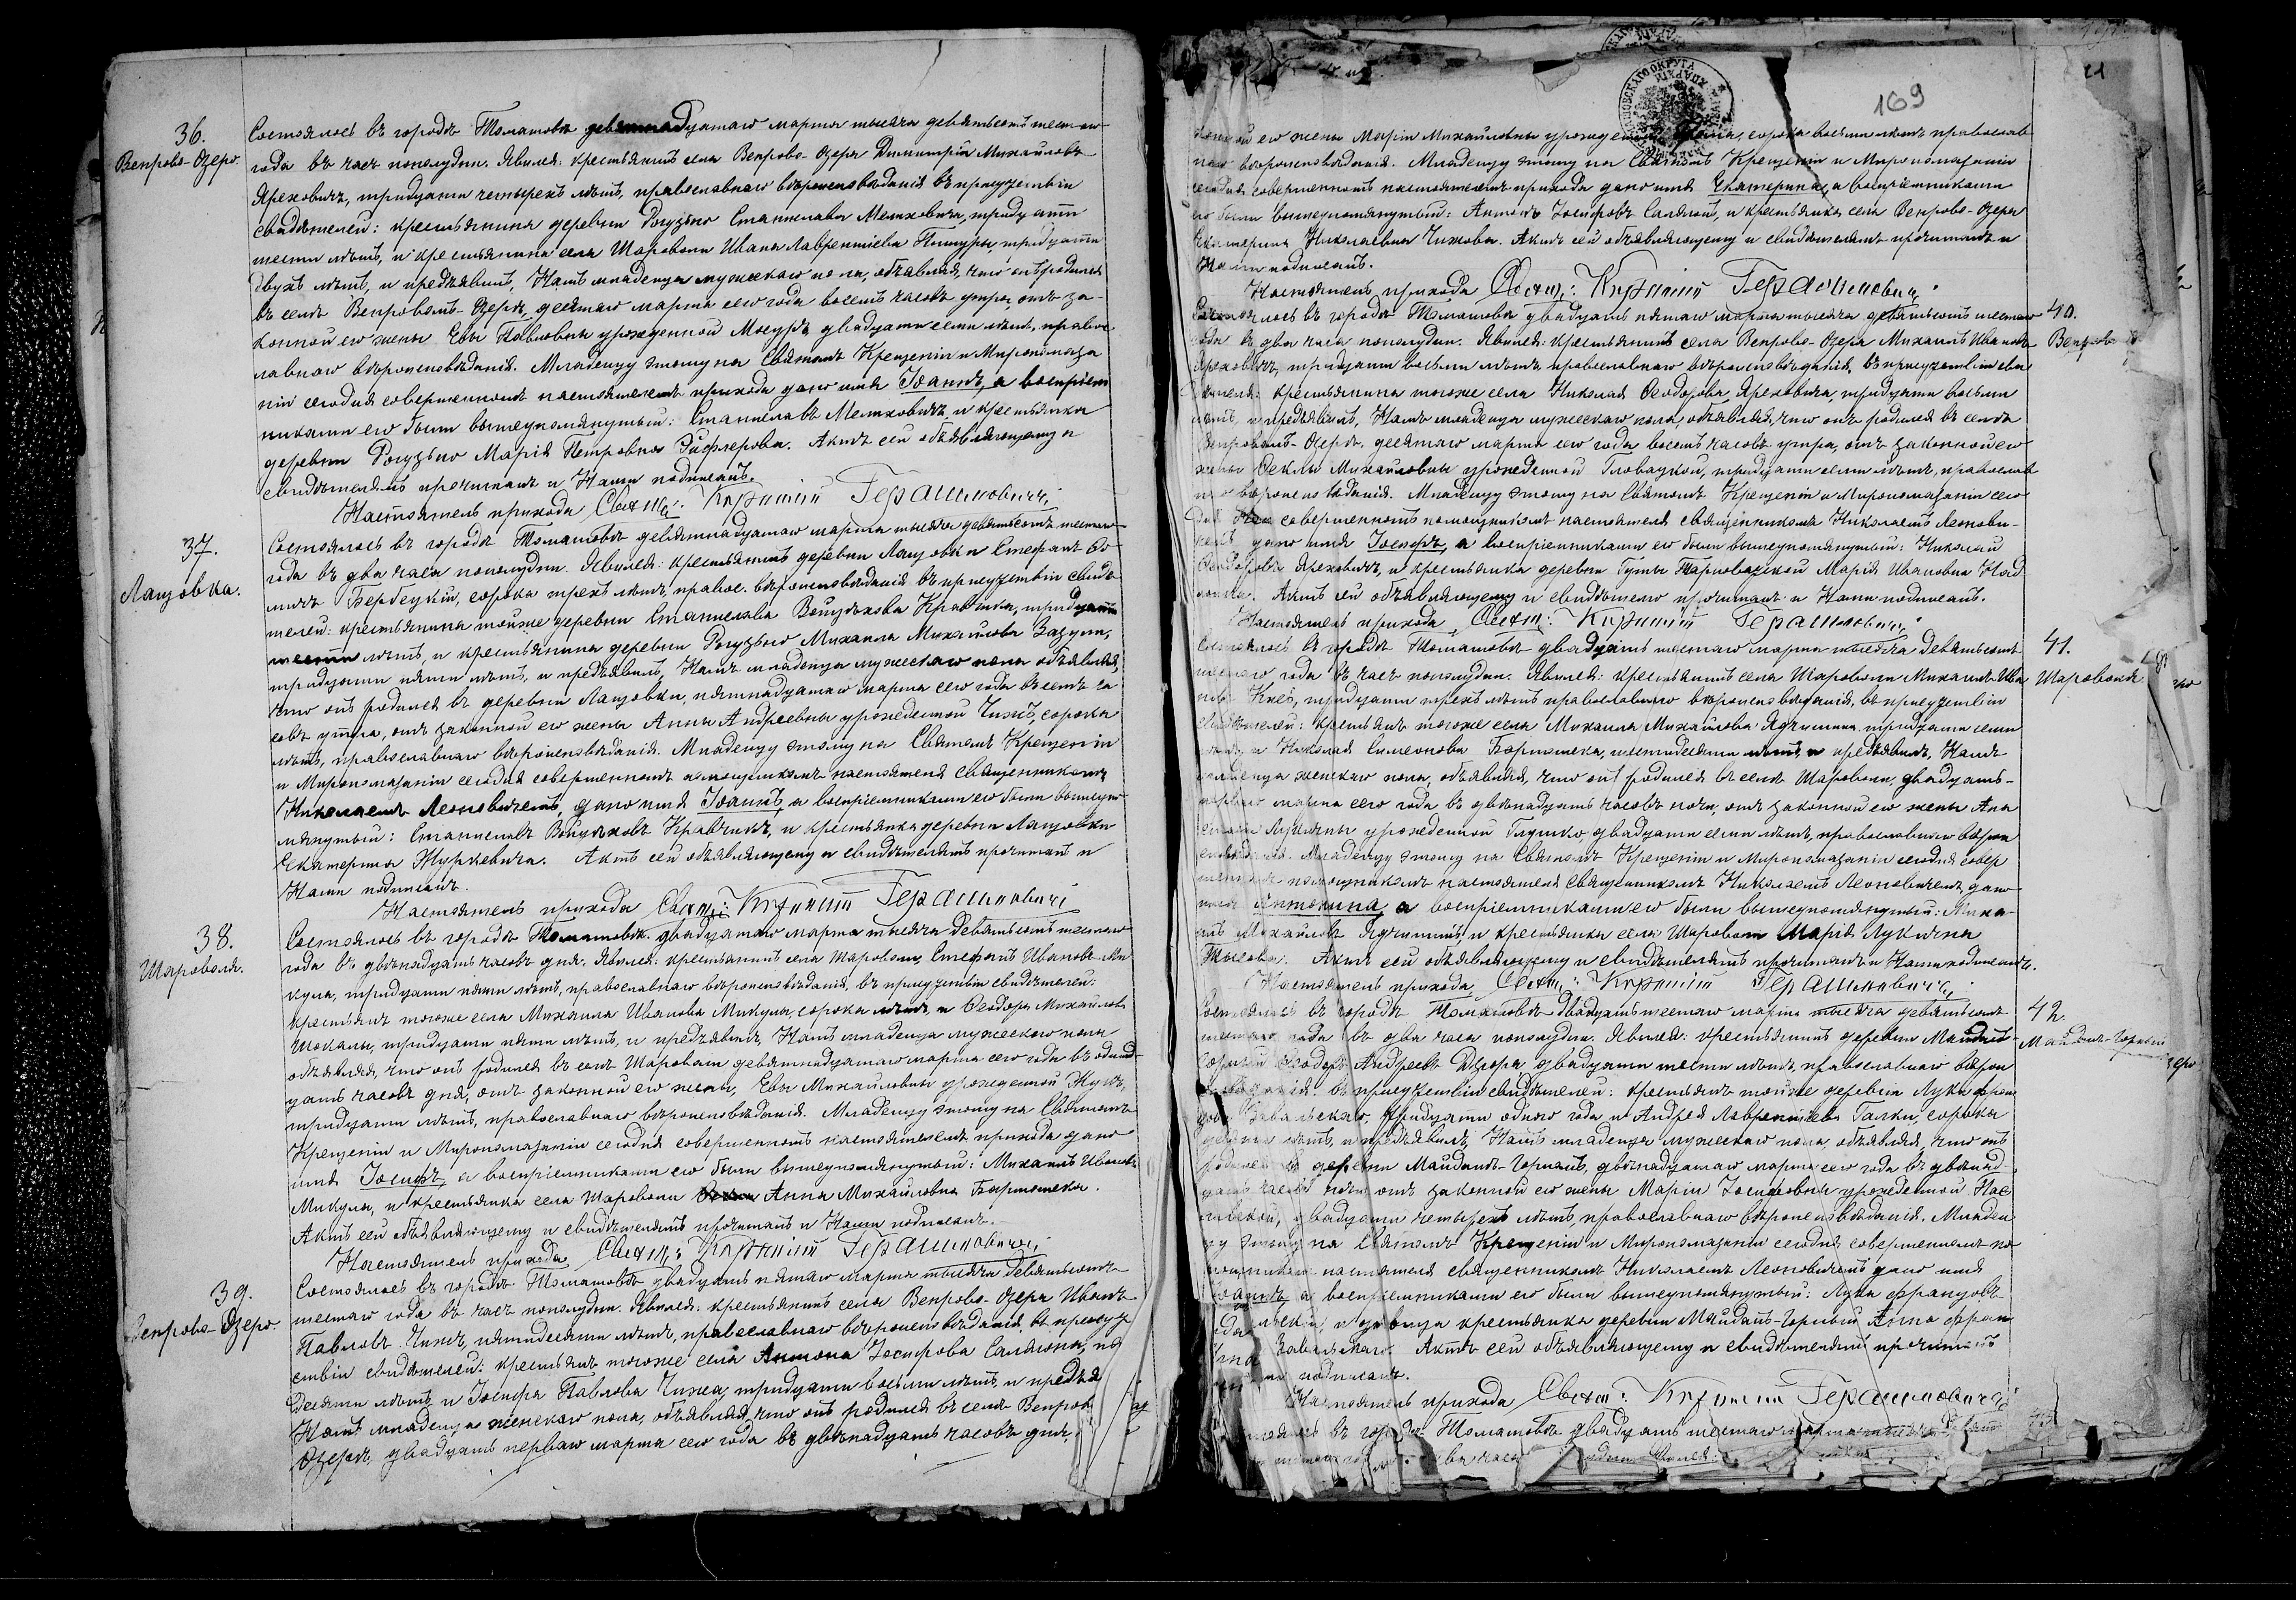 36.
Венрово-Озеро.
Состоялось въ городѣ Томашовѣ девятнадцатаго марта тысяча девятьсотъ шестаго
года въ часъ пополудни. Явился: крестьянинъ села Венрово-Озера Димитрій Михайловъ
Ярековичъ, тридцати четырехъ лѣтъ, православнаго вѣроисповѣданія въ присутствіи
свидѣтелей: крестьянина деревни Рогузьно Станислава Мелховича, тридцати
шести лѣтъ, и крестьянина села Шароволи Ивана Лаврентіева Пищуры, тридцати
двухъ лѣтъ, и предъявилъ Намъ младенца мужескаго пола, объявляя, что онъ родился
въ селѣ Венровомъ-Озерѣ, десятаго марта сего года восемь часовъ утра, отъ за-
конной его жены Евы Павловны урожденной Мазуръ двадцати семи лѣтъ, правос
лавнаго вѣроисповѣданія. Младенцу этому на Святомъ Крещеніи и Миропомаза
ніи сегодня совершенномъ настоятелемъ прихода дано имя Іоаннъ, а воспріем
никами его были вышеупомянутый: Станиславъ Мелховичъ, и крестьянка
деревни Рогузьно Марія Петровна Сифкерова. Актъ сей объявляющему и
свидѣтелямъ прочитанъ и Нами подписанъ.
Настоятель прихода Свящ: Кириллъ Герасимовичъ
37.
Лащовка.
Состоялось въ городѣ Томашовѣ девятнадцатаго марта тысяча девятьсотъ шестаго
года въ два часа пополудни. Явился: крестьянинъ деревни Лащовки Стефанъ Ѳо
мичъ Бербецкій, сорока трехъ лѣтъ, правос. вѣроисповѣданія въ присутствіи свидѣ
телей: крестьянина тойже деревни Станислава Войцѣхова Кравчика, тридцати
шести лѣтъ, и крестьянина деревни Рогузьно Михаила Михайлова Зазули,
тридцати пяти лѣтъ, и предъявилъ Намъ младенца мужескаго пола объявляя,
что онъ родился въ деревни Лащовки, пятнадцатаго марта сего года въ семь ча
совъ утра, отъ законной его жены Анны Андреевны урожденной Чижъ, сорока
лѣтъ, православнаго вѣроисповѣданія. Младенцу этому на Святомъ Крещеніи
и Миропомазаніи сегодня совершенномъ помощникомъ настоятеля Священникомъ
Николаемъ Леоновичемъ, дано имя Іоаннъ, а воспріемниками его были вышеупо
мянутый: Станиславъ Войцѣховъ Кравчикъ, и крестьянка деревни Лащовки
Екатерина Журкевичъ. Актъ сей объявляющему и свидѣтелямъ прочитанъ и
Нами подписанъ.
Настоятель прихода Свящ: Кириллъ Герасимовичъ
38.
Шароволя.
Состоялось въ городѣ Томашовѣ двадцатаго марта тысяча девятьсотъ шестаго
года въ двѣнадцать часовъ дня. Явился: крестьянинъ села Шароволи, Стефанъ Ивановъ Ми
кула, тридцати пяти лѣтъ, православнаго вѣроисповѣданія, въ присутствіи свидѣтелей:
крестьянъ тогоже села Михаила Иванова Микулы, сорока лѣтъ, и Ѳеодора Михайлова
Шокалы, тридцати пяти лѣтъ, и предъявилъ, Намъ младенца мужескаго пола
объявляя, что онъ родился въ селѣ Шароволи девятнадцатаго марта сего года въ одинад-
цать часовъ дня, отъ законной его жены, Евы Михайловны урожденной Жукъ,
тридцати лѣтъ, православнаго вѣроисповѣданія. Младенцу этому на Святомъ
Крещеніи и Миропомазаніи сегодня совершенномъ настоятелемъ прихода дано
имя Іосифъ, а воспріемниками его были вышеупомянутый: Михаилъ Ивановъ
Микула, и крестьянка села Шароволи Анна Михайловна Бартошека.
Актъ сей объявляющему и свидѣтелямъ прочитанъ и Нами подписанъ.
Настоятель прихода Свящ: Кириллъ Герасимовичъ
39.
Венрово-Озеро.
Состоялось въ городѣ Томашовѣ двадцать пятаго марта тысяча девятьсотъ
шестаго года въ часъ пополудни. Явился: крестьянинъ села Венрово-Озера Иванъ
Павловъ Чижъ, пятидесяти лѣтъ, православнаго вѣроисповѣданія, въ присут
ствіи свидѣтелей: крестьянъ тогоже села Антона Іосифова Саляпы, пя
десяти лѣтъ и Іосифа Павлова Чижа, тридцати восьми лѣтъ, и предъя
Намъ младенца женскаго пола, объявляя, что онъ родился въ селѣ Венров
Озерѣ, двадцать перваго марта сего года въ двѣнадцать часовъ дня,
169
21
его жены Маріи Михайловны урожденной сорока восьми лѣтъ православ
наго вѣроисповѣданія. Младенцу этому на Святомъ Крещеніи и Миропомазаніи
сегодня совершенномъ настоятелемъ прихода дано имя Екатерина, а воспріемниками
его были вышеупомянутый: Антонъ Іосифовъ Саляпа, и крестьянка села Венрово-Озера
Екатерина Николаевна Чижова. Актъ сей объявляющему и свидѣтелямъ прочитанъ и
Нами подписанъ.
Настоятель прихода Свящ: Кириллъ Герасимовичъ
40.
Венров
Состоялось въ городѣ Томашовѣ двадцать пятаго марта тысяча девятьсотъ шестаго
года въ два часа пополудни. Явился: крестьянинъ села Венрово-Озера Михаилъ Ивановъ
Ярековичъ, тридцати восьми лѣтъ православнаго вѣроисповѣданія, въ присутствіи сви
дѣтеля: крестьянина тогоже села Николая Ѳеодорова Ярековича, тридцати восьми
лѣтъ, и предъявилъ, Намъ младенца мужескаго пола, объявляя, что онъ родился въ селѣ
Венровомъ-Озерѣ, десятаго марта сего года восемь часовъ утра, отъ законной его
жены Ѳеклы Михайловны урожденной Гловацкой, тридцати семи лѣтъ, православ
наго вѣроисповѣданія. Младенцу этому на Святомъ Крещеніи и Миропомазаніи сего
дня совершенномъ помощникомъ настоятеля священникомъ Николаемъ Леонови-
чемъ дано имя Іосифъ, а воспріемниками его были вышеупомянутый: Николай
Ѳеодоровъ Ярековичъ, и крестьянка деревни Гуты Тарноватской Марія Ивановна
Актъ сей объявляющему и свидѣтелю прочитанъ и Нами подписанъ.
Настоятель прихода Свящ: Кириллъ Герасимовичъ
41.
Шароволя.
Состоялось въ городѣ Томашовѣ двадцать шестаго марта тысяча девятьсотъ
шестаго года въ часъ пополудни. Явился: крестьянинъ села Шароволи Михаилъ Ива
новъ Кнесъ, тридцати трехъ лѣтъ православнаго вѣроисповѣданія, въ присутствіи
свидѣтелей: крестьянъ тогоже села Михаила Михайлова Ядчишина тридцати семи
лѣтъ, и Николая Симеонова Бартошека, шестидесяти лѣтъ, и предъявилъ, Намъ
младенца женскаго пола, объявляя, что онъ родился въ селѣ Шароволи, двадцать-
перваго марта сего года въ двѣнадцать часовъ ночи, отъ законной его жены Ана
стасіи Лукичны урожденной Глушко, двадцати семи лѣтъ, православнаго вѣрои
сповѣданія. Младенцу этому на Святомъ Крещеніи и Миропомазаніи сегодня совер
шенномъ помощникомъ настоятеля Священникомъ Николаемъ Леоновичемъ, дано
имя Антонина, а воспріемниками его были вышеупомянутый: Миха-
илъ Михайловъ Ядчишинъ, и крестьянка села Шароволи Марія Лукична
Актъ сей объявляющему и свидѣтелямъ прочитанъ и Нами подписанъ.
Настоятель прихода Свящ: Кириллъ Герасимовичъ
42.
Майданъ-Горный
Состоялось въ городѣ Томашовѣ двадцать шестаго марта тысяча девятьсотъ
шестаго года въ два часа пополудни. Явился: крестьянинъ деревни Майданъ-
Горный Ѳеодоръ Андреевъ Дзюра двадцати шести лѣтъ, православнаго вѣрои
сповѣданія въ присутствіи свидѣтелей: крестьянъ тойже деревни Луки Фран
цова Завальскаго, тридцати одного года и Андрея Лаврентіева Галки, сорока
лѣтъ, и предъявилъ, Намъ младенца мужескаго пола, объявляя, что онъ
родился въ деревни Майданъ-Горный, двѣнадцатаго марта сего года въ двѣнад-
цать часовъ ночи отъ законной его жены Маріи Іосифовны урожденной Пас
лавской, двадцати четырехъ лѣтъ, православнаго вѣроисповѣданія. Младен
цу этому на Святомъ Крещеніи и Миропомазаніи сегодня совершенномъ по
мощникомъ настоятеля священникомъ Николаемъ Леоновичемъ дано имя
Іоаннъ, а воспріемниками его были вышеупомянутый: Лука Францовъ
и девица крестьянка деревни Майданъ-Горный Анна Фран
Завальская. Актъ сей объявляющему и свидѣтелямъ прочитанъ
подписанъ.
Настоятель прихода Свящ: Кириллъ Герасимовичъ
въ городѣ Томашовѣ двадцать шестаго марта тысяча девят